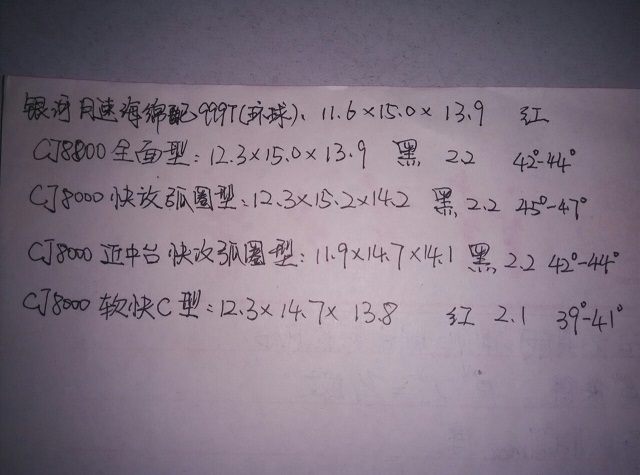 银河月速海绵配999T(环球)、11.6×15.0×13.9 红
CJ8800全面型:12.3×15.0×13.9 黑 2.2 42°-44°
CJ8000快攻弧圈型:12.3×15.2×14.2 黑 2.2 45°-47°
CJ8000近中台快攻弧圈型:11.9×14.7×14.1 黑 2.2 42°-44°
CJ8000软快C型:12.3×14.7×13.8 红 2.1 39°-41°